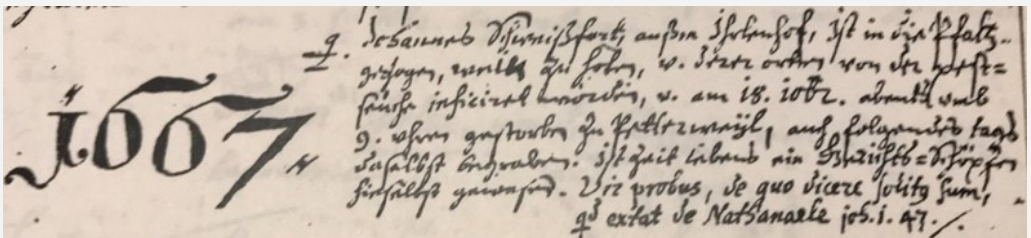 9. Johannes außm ist in die Pfaltz-
gezogen, wein zu holen, v. derer orten von der pest=
seuche inficiret worden, v. am 18. 10br. abents umb
1667
9. uhren gestorben zu Petterweyl, auch folgendes tags
daselbst begraben. Ist zeit lebens ein Gerichts=Schöpfen
hieselbst gewesen. Vir probus, de quo dicere solitq sum,
qd extat de Nathanaele joh. 1. 47. /.